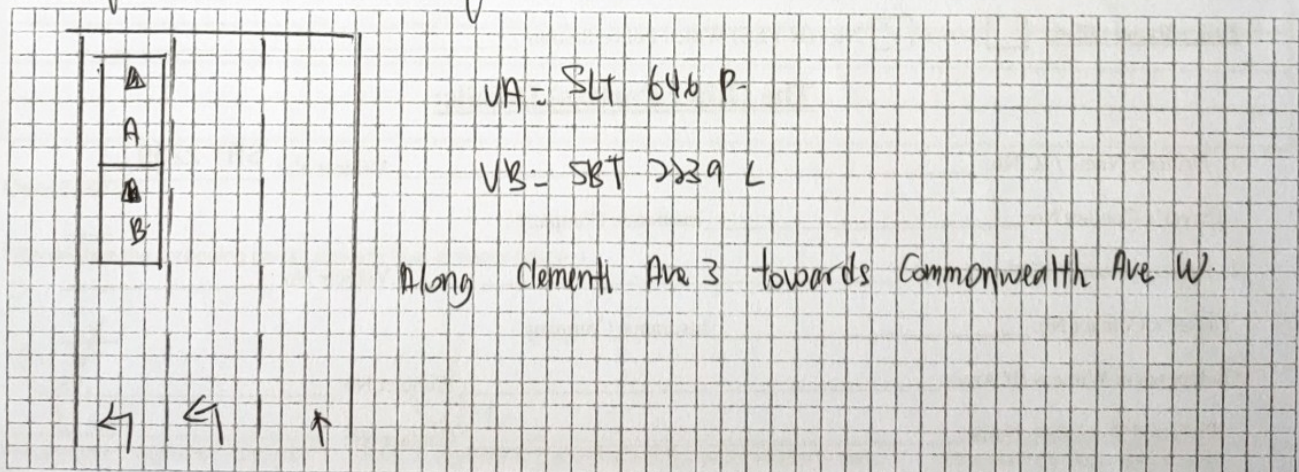 A
B
VA = SLT 646 P
VB = SBT 2239 L
Along Clementi Ave 3 towards Commonwealth Ave W.